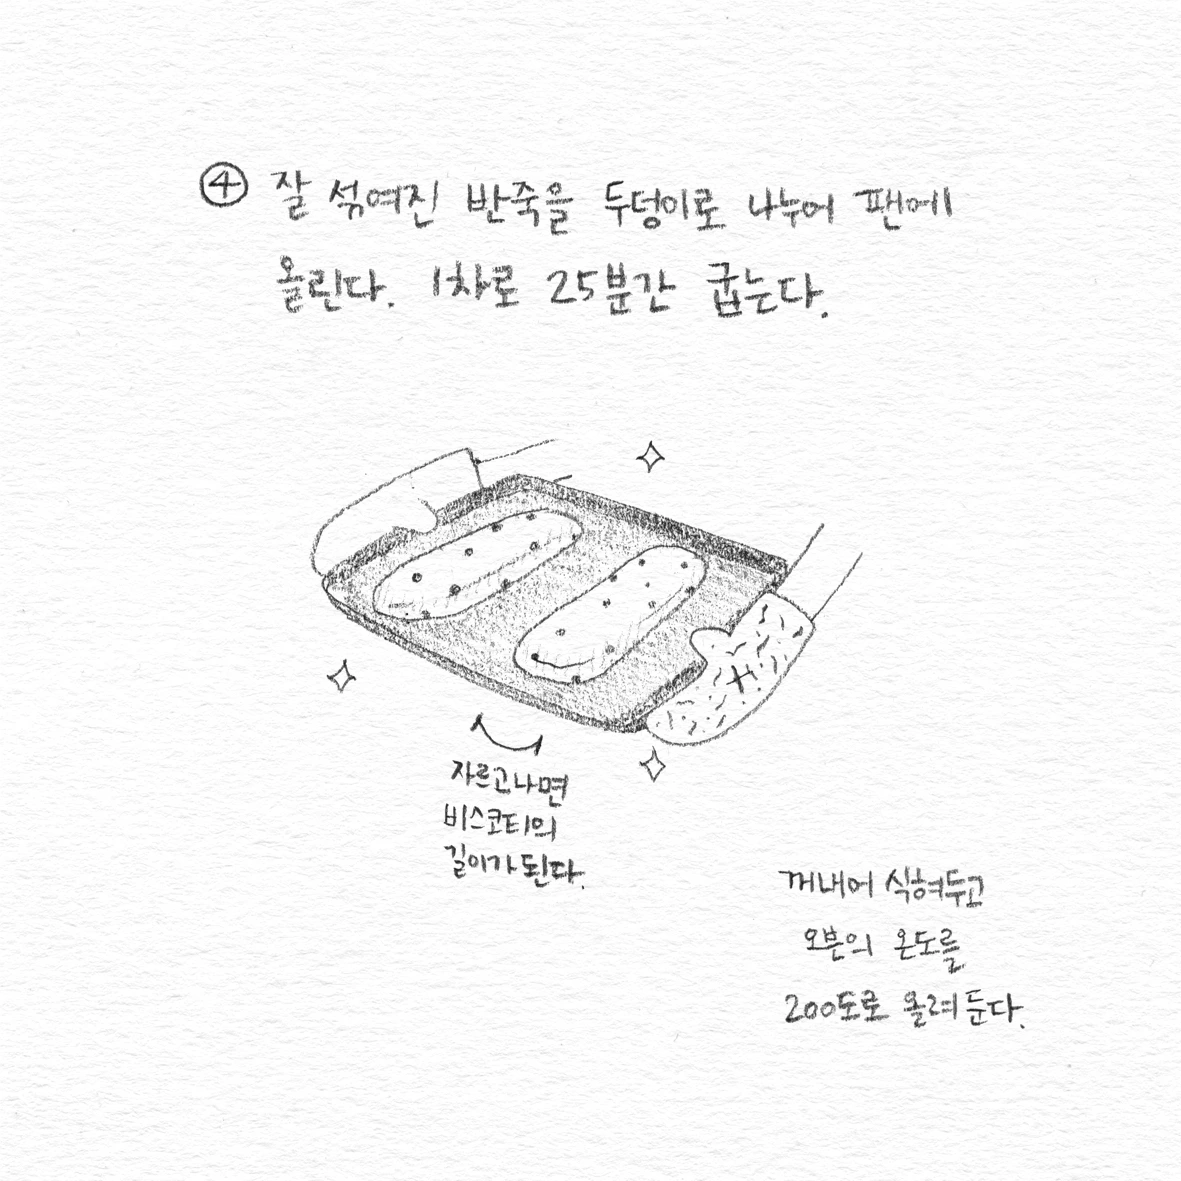 ④ 잘 섞여진 반죽을 두덩이로 나누어 팬에
올린다. 1차로 25분간 굽는다.
자르고나면
비스코티의
길이가 된다.
꺼내어 식혀두고
오븐의 온도를
200도로 올려 둔다.